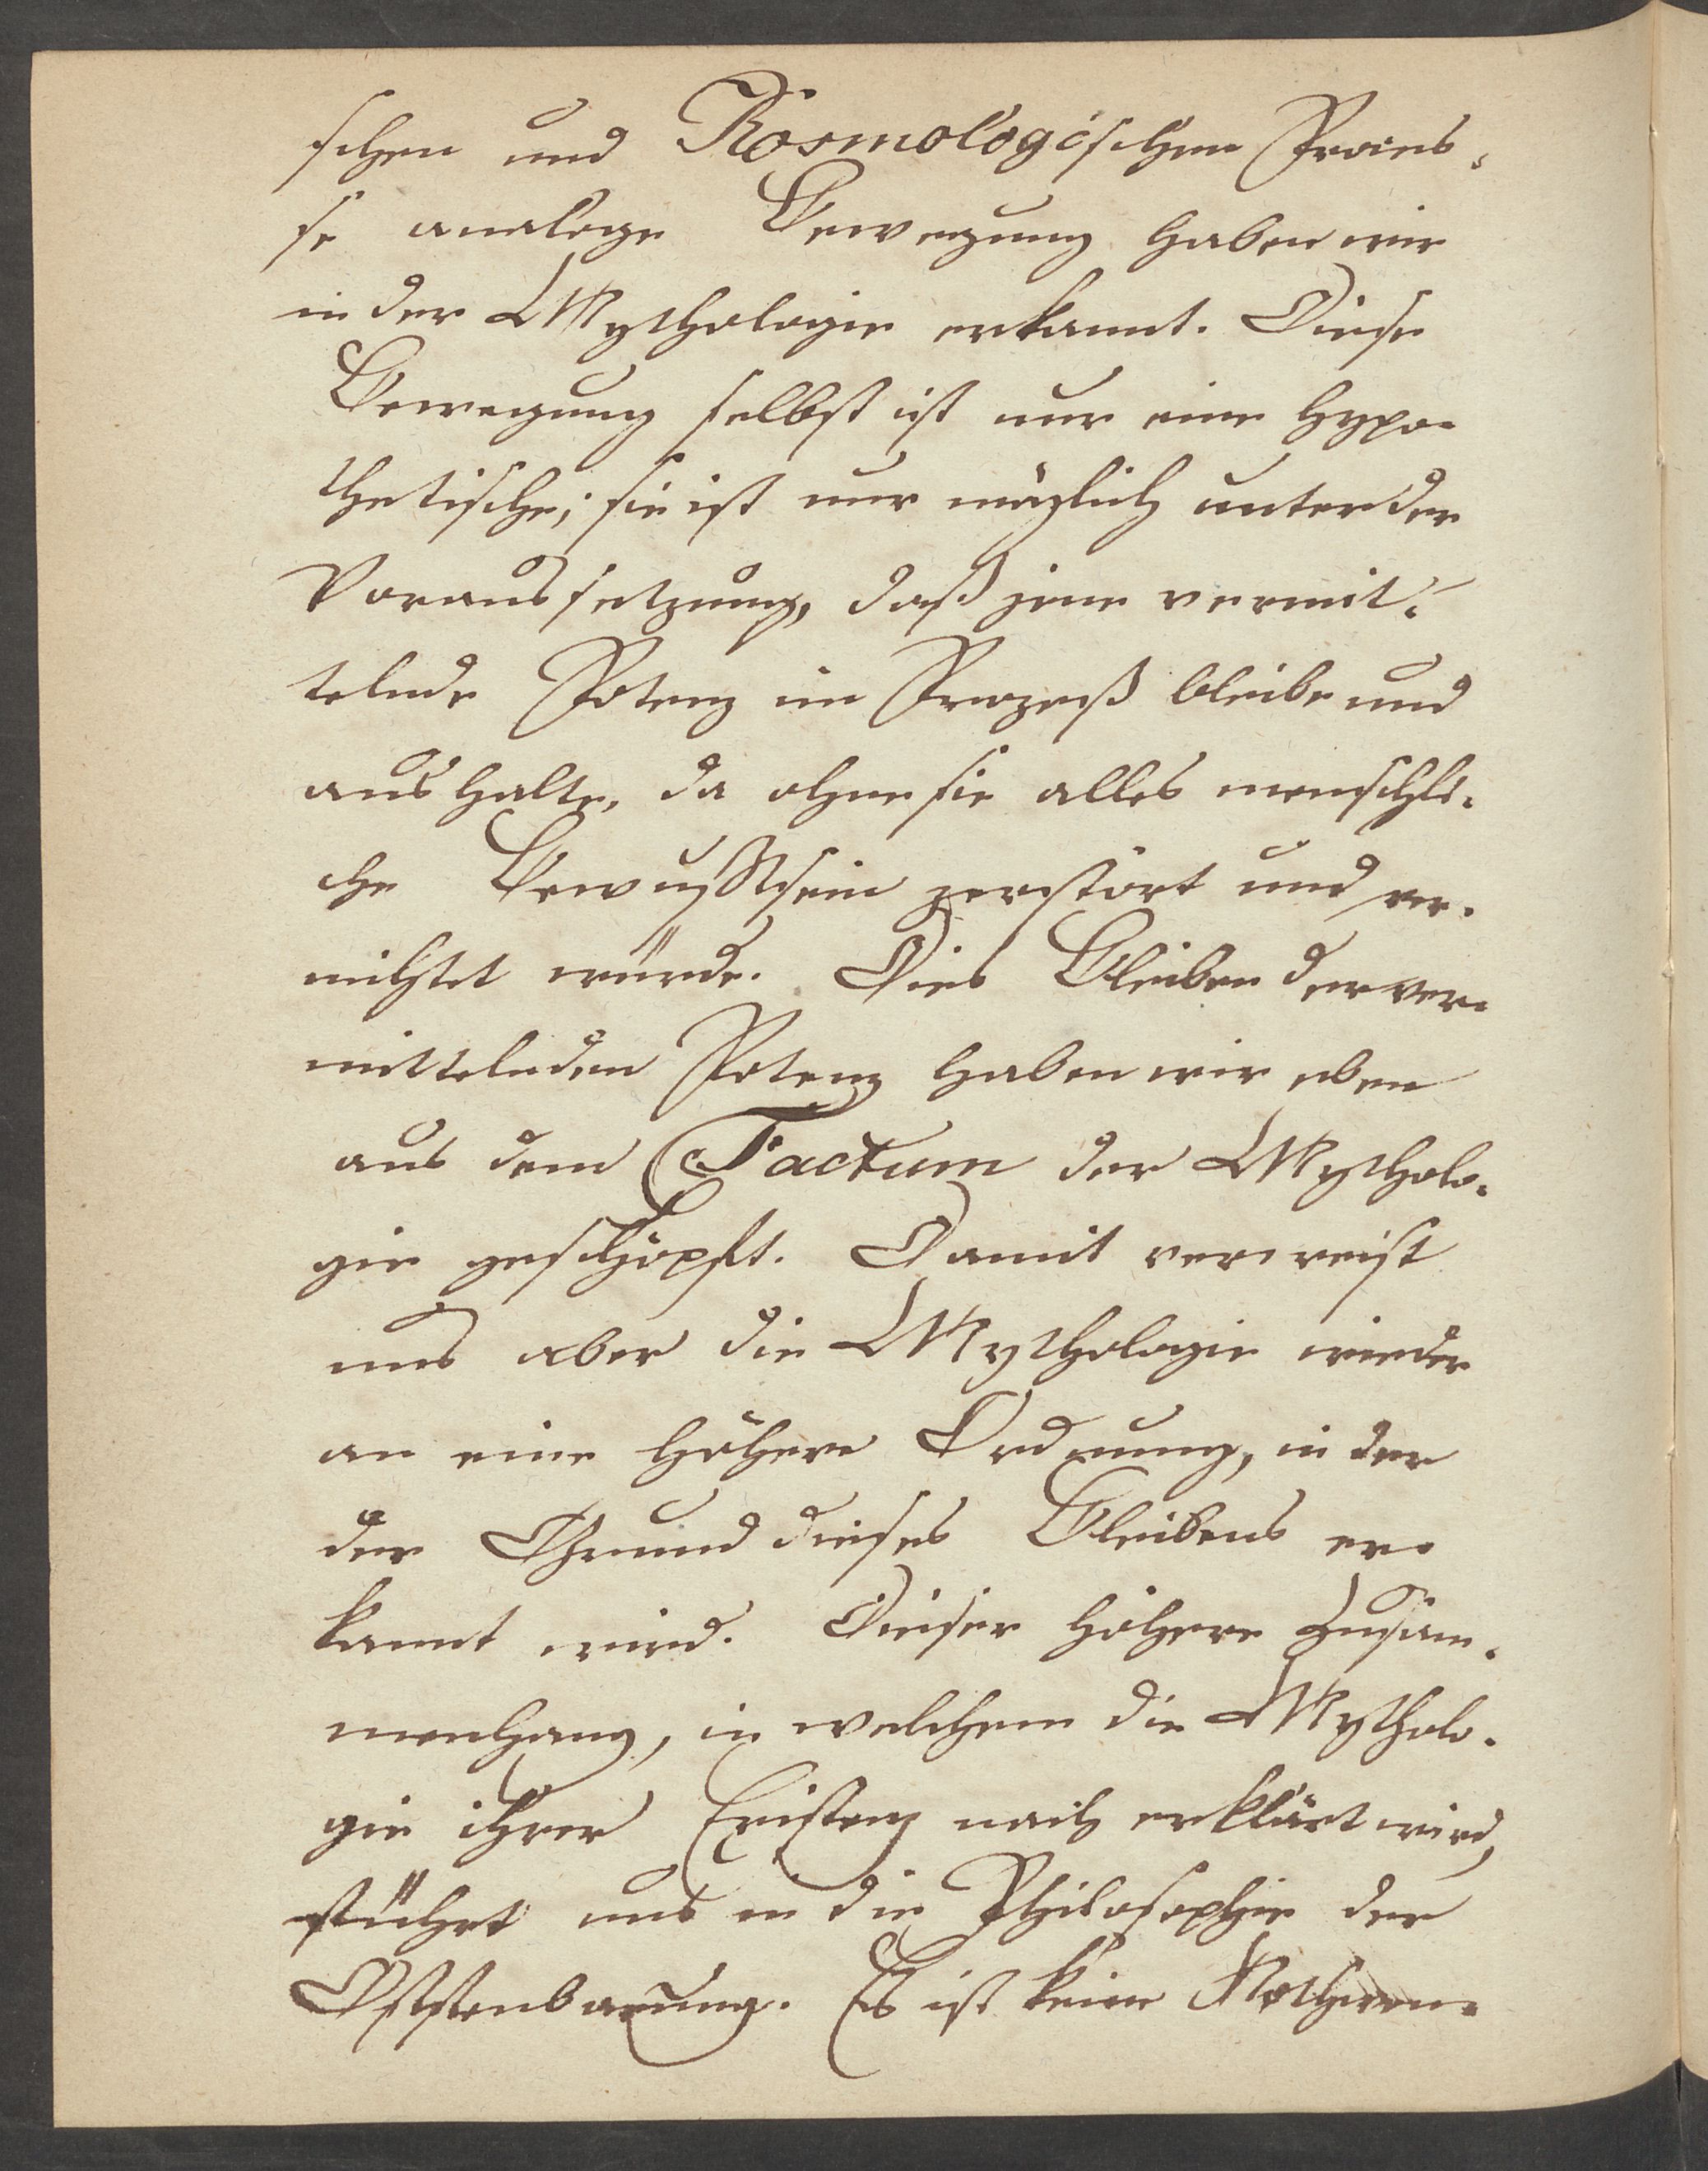 schen und Kosmologischen Proces-
se analoge Bewegung haben wir
in der Mythologie erkannt. Diese
Bewegung selbst ist nur eine hypo-
thetische; sie ist nur möglich unter der
Voraussetzung, daß jene vermit-
telnde Potenz im Prozeß bleibe und
aushalte, da ohne sie alles menschli-
che Bewußtsein zerstört und ver-
nichtet würde. Dies Bleiben der ver-
mittelnden Potenz haben wir eben
aus dem Factum der Mytholo-
gie geschöpft. Damit verweist
uns aber die Mythologie wieder
an eine höhere Ordnung, in der
der Grund dieses Bleibens er-
kannt wird. Dieser höhere Zusam-
menhang, in welchem die Mytholo-
gie ihrer Existenz nach erklärt wird,
führt uns in die Philosophie der
Offenbarung. Es ist keine Nothwen-